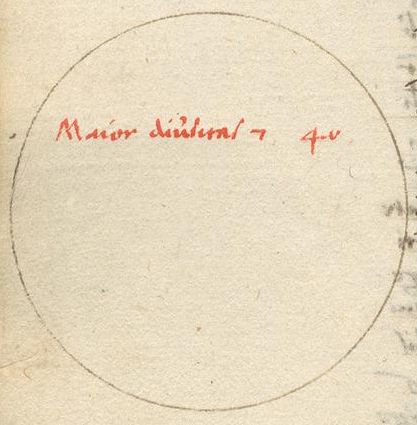 Maior diũsitas ⁊ 4·v